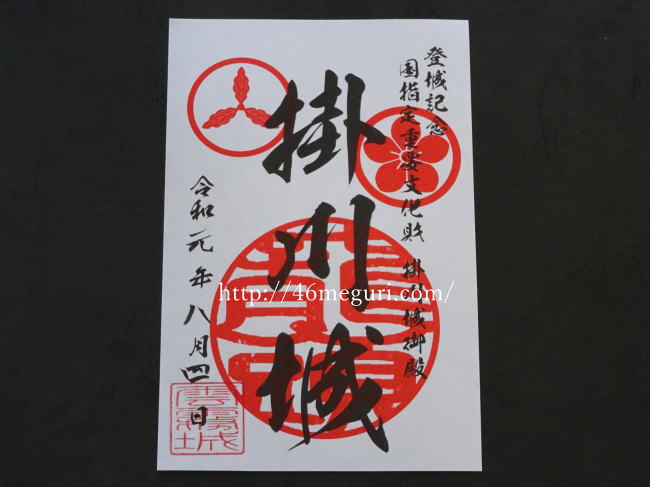 登城記念
国指定重要文化財 掛川城御殿
掛川城
令和元年八月四日
雲霧城
http://46meguri.com/